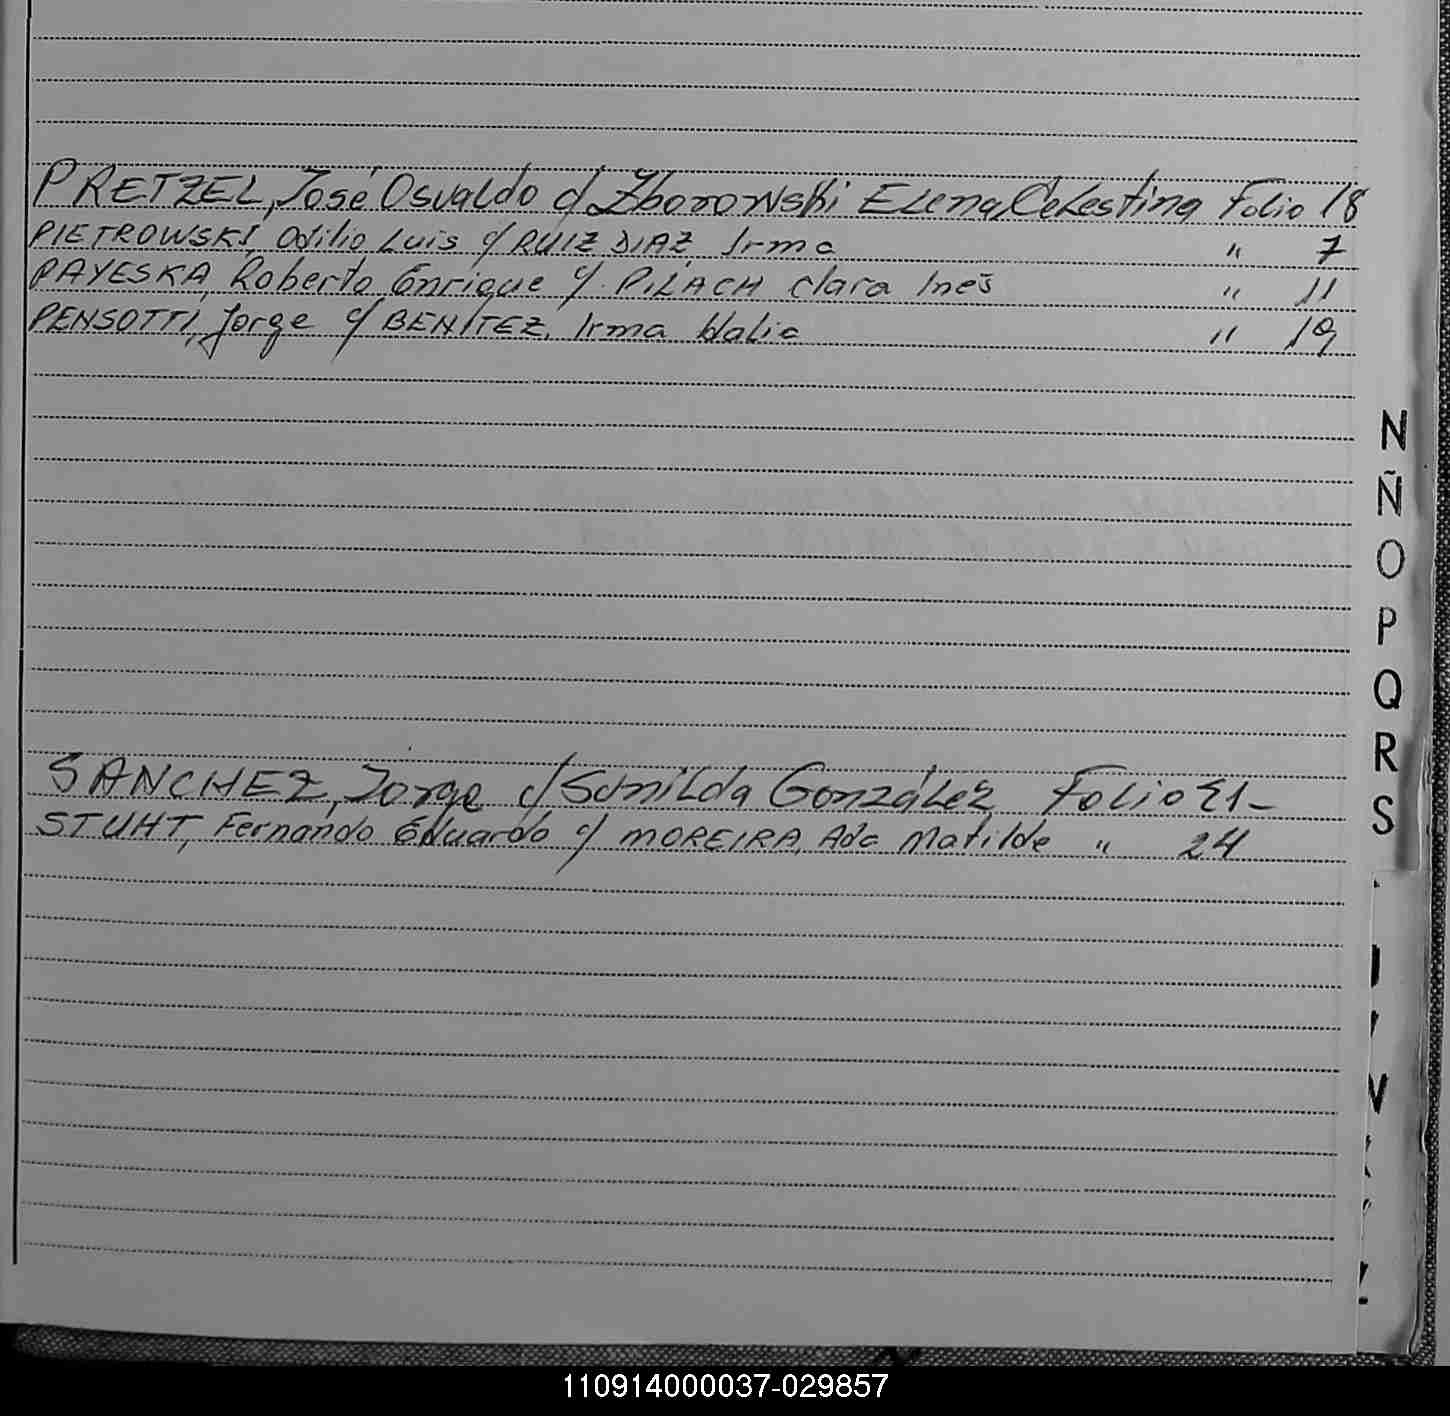 PRETZEL, José Osvaldo c/ Zborowski Elena Celestina Folio 18
PIETROWSKI, Odilio Luis c/ RUIZ DIAZ Irma " 7
PAYESKA, Roberto Enrique c/ PILACH Clara Inés " 11
PENSOTTI, Jorge c/ BENITEZ, Irma Idalia " 19
N
Ñ
O
P
Q
R
S
SANCHEZ, Jorge c/ Sunilda González Folio 21-
STUHT, Fernando Eduardo c/ MOREIRA, Ada Matilde " 24
110914000037-029857